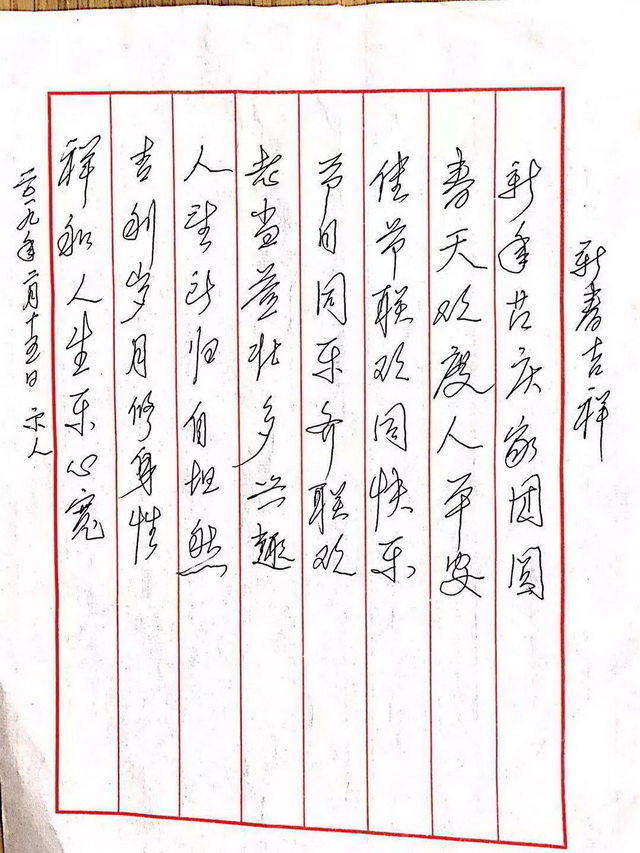 新春吉祥
新年共庆家团圆
春天欢度人平安
佳节联欢同快乐
节日同乐齐联欢
老当益壮多兴趣
人望所归自坦然
吉利岁月修身性
祥和人生乐心宽
二〇一九年二月十五日